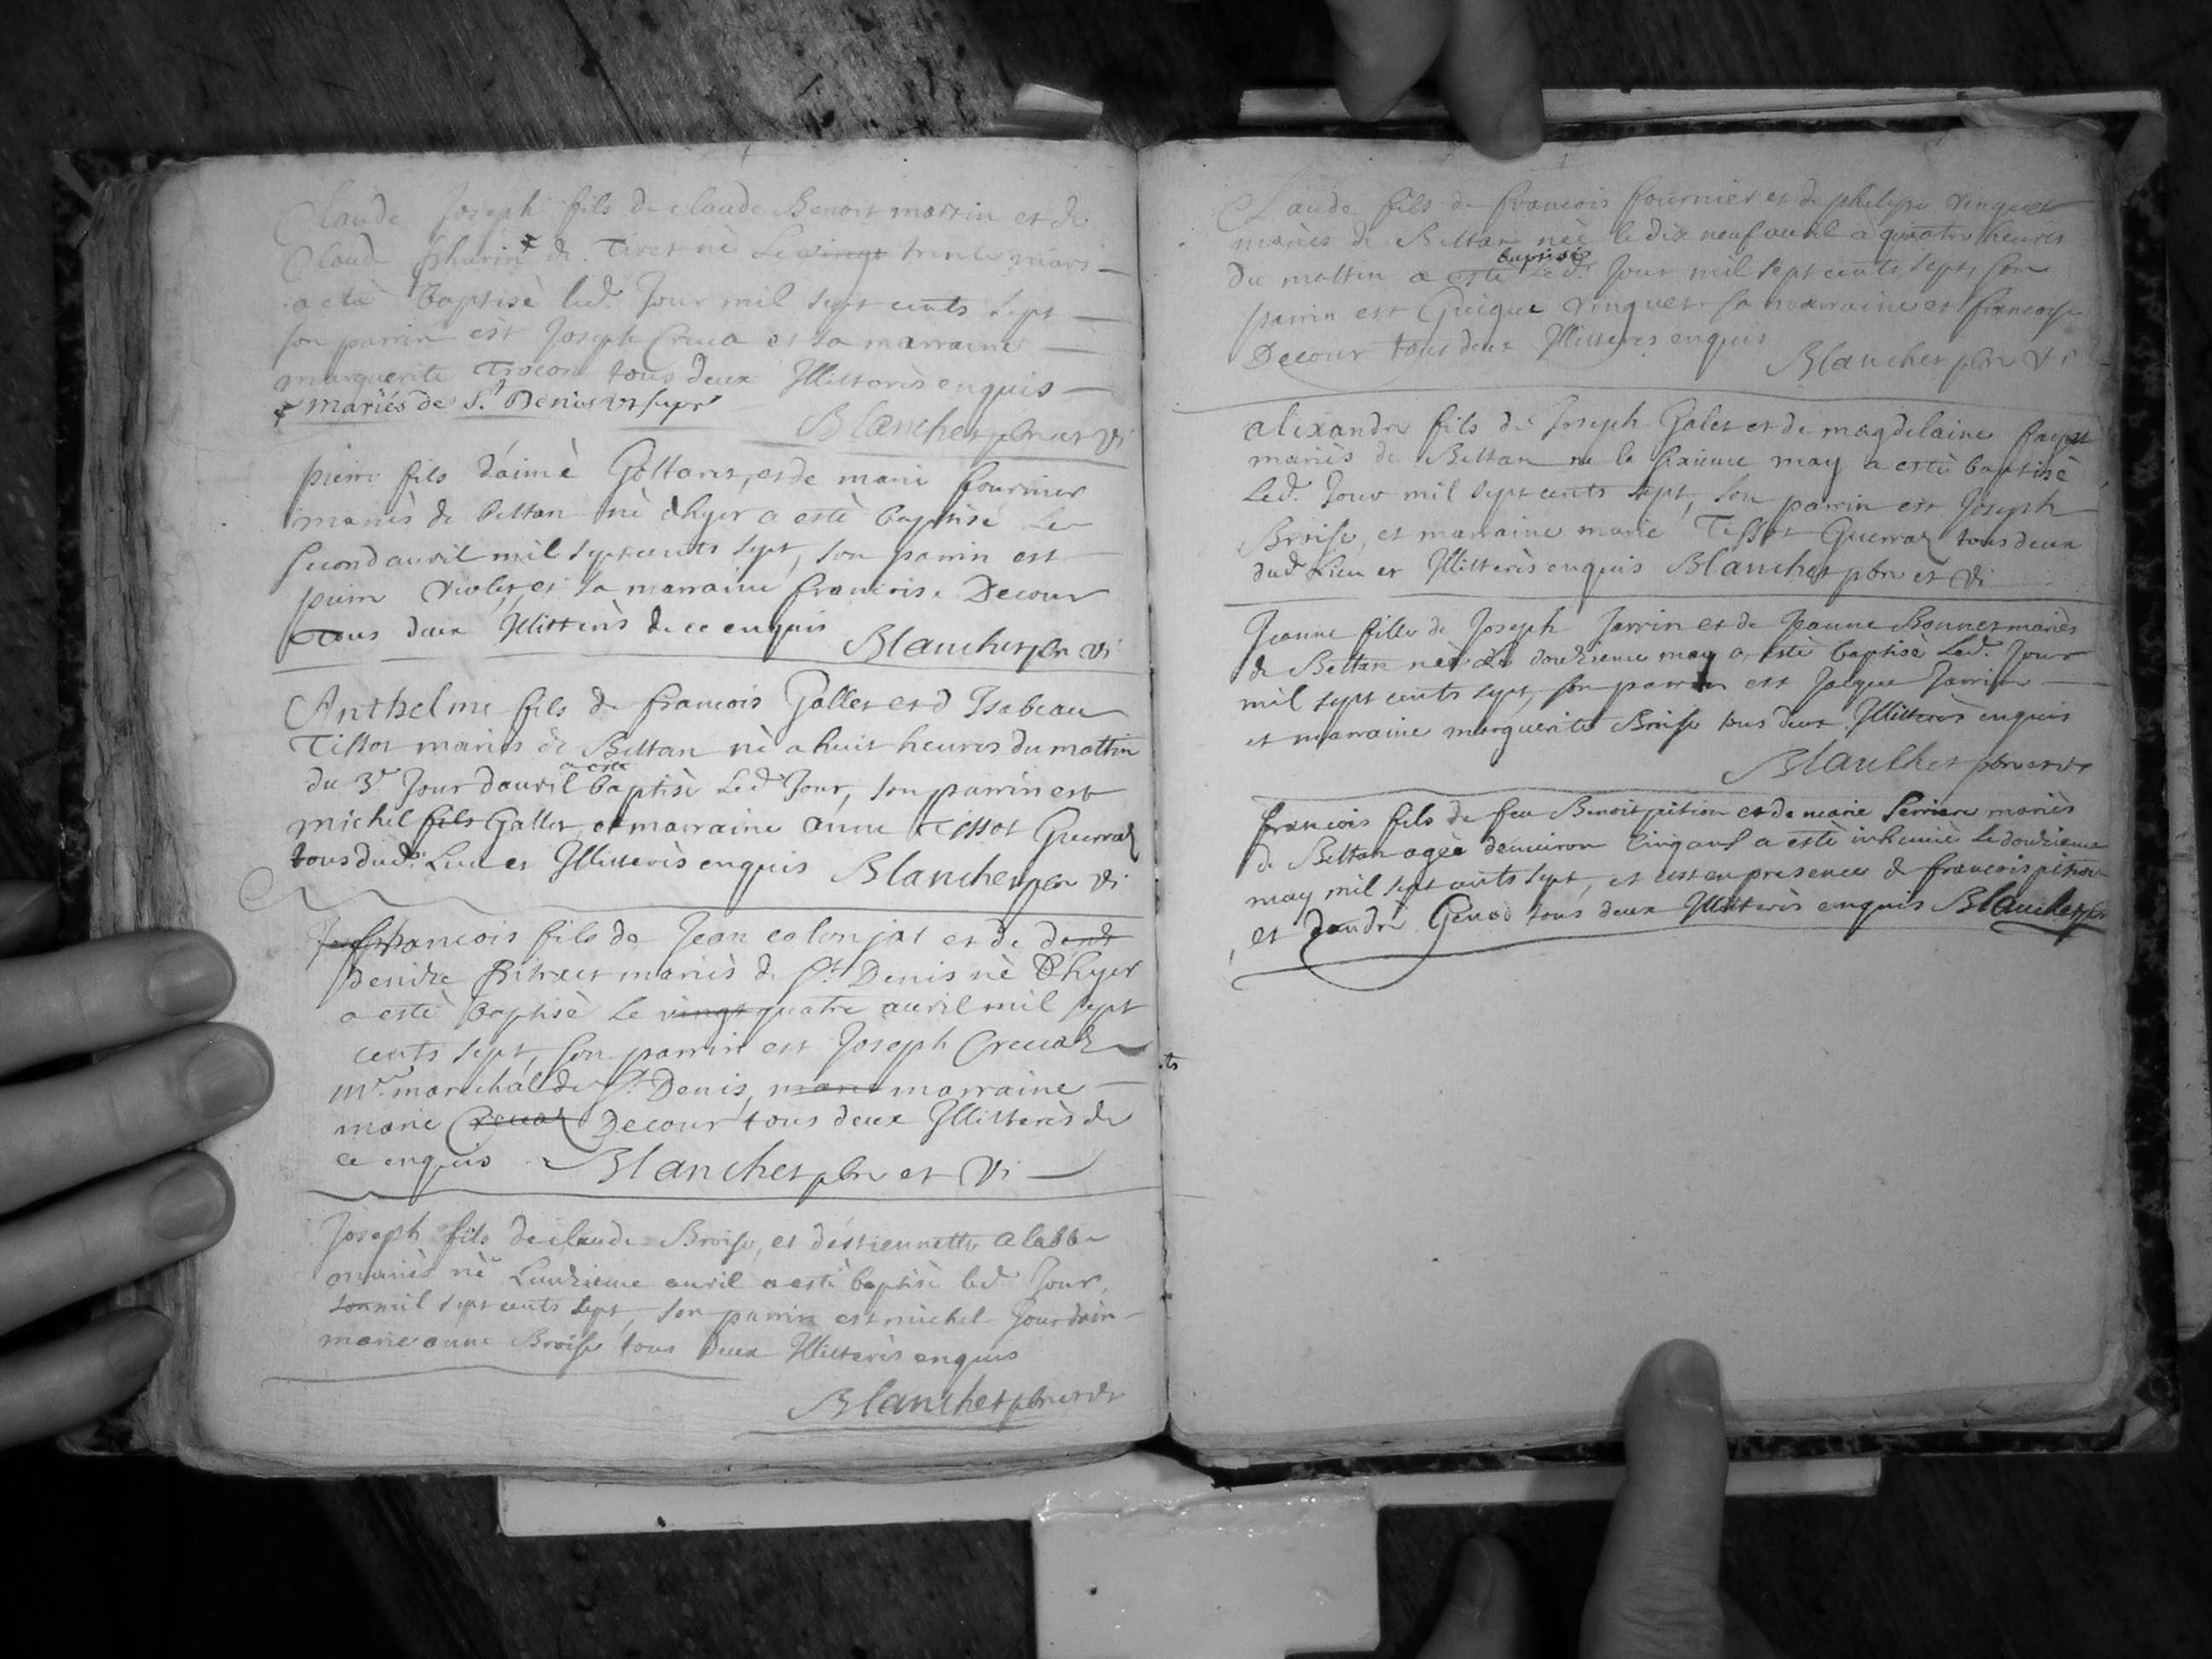 Claude Joseph fils de claude Benoit martin et de
Claud de Tiret nè Le vingt trente mars
a etè baptisè led. Jour mil sept cents sept
son parrin est Joseph Creua et sa marraine
marguerite Trocon tous deux Illitterès enquis
mariés de S.t Denis vt supr
Blanchet pbr et Vi
pierre fils d'aimè Gottaret, et de marie fournier
mariès de bettan nè d'hyer a estè baptisè Le
second auril mil sept cents sept, son parrin est
pierre violet et sa marraine francoise Decour
Tous deux Illitterès de ce enquis Blanchet pbr Vi
Anthelme fils de francois Gallet et d Isabeau
Tissot mariès de Bettan nè a huit heures du mattin
du 3.e Jour dauril a este baptisè Led Jour, son parrin est
michel fils Gallet et marraine anne Tissot Guerraz
tous dud. Lieu et Illitterès enquis Blanchet pbr Vi
francois fils de Jean colonjat et de
Denise mariès de St Denis nè d'hyer
a estè baptisè Le vingt quatre auril mil sept
cents sept, son parrin est Joseph Creuaz
m.e marechal de St Denis, marraine
marie Creuaz Decour tous deux Illitterès de
ce enquis Blanchet pbr et Vi
Joseph fils de claude Broise, et d'estiennette
mariès nè L'unzieme auril a estè baptisè led. Jour,
son mil sept cents sept, son parrin est michel Jourdain
marie anne Broise tous deux Illitterès enquis
Blanchet pbr et Vi
Claude fils de francois fournier et de philipe vinquet
mariès de Bettan neè le dix neuf auril a quatre heures
du mattin a estè baptisè Led. Jour mil sept cents sept, son
parrin est Guigue vinquet sa marraine et francoise
Decour tous deux Illitterès enquis Blanchet pbr Vi
alixandre fils de Joseph Galet et de magdelaine
mariès de Bettan ne le may a estè baptisè
Led. Jour mil sept cents sept, son parrin est Joseph
Broise, et marraine marie Tissot Guerraz tous deux
dud Lieu et Illitterès enquis Blanchet pbr et Vi
Jeanne fille de Joseph Jarrin et de Jeanne Bonnet mariès
de Bettan neè le douzieme may a estè baptisè Led. Jour
mil sept cents sept, son parrin est Jacque Jarrin
et marraine marguerite Broise tous deux Illitterès enquis
Blanchet pbr et Vi
francois fils de feu Benoit pition et de marie mariès
de Bettan ageè denuiron cinq ans a estè inhumè Le douzieme
may mil sept cents sept, et cest en presence de francois pition
et dandrè Genod tous deux Illitterès enquis Blanchet pbr